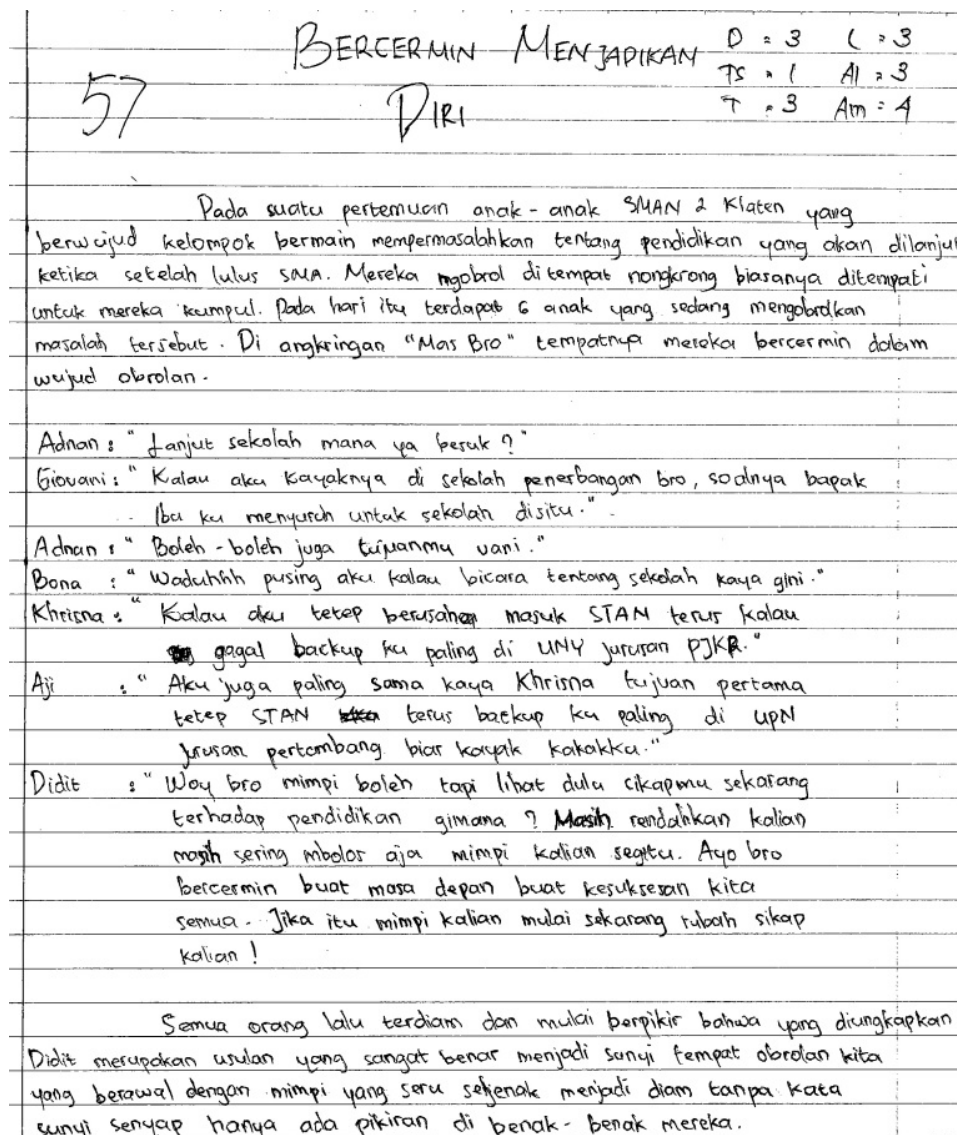 BERCERMIN MENJADIKAN
DIRI
57
D = 3 L = 3
TS = 1 Al = 3
T = 3 Am = 4
Pada suatu pertemuan anak-anak SMAN 2 Klaten yang
berwujud kelompok bermain mempermasalahkan tentang pendidikan yang akan dilanjut
ketika setelah lulus SMA. Mereka ngobrol ditempat nongkrong biasanya ditempati
untuk mereka kumpul. Pada hari itu terdapat 6 anak yang sedang mengobrolkan
masalah tersebut. Di angkringan "Mas Bro" tempatnya mereka bercermin dalam
wujud obrolan.
Adnan : "Lanjut sekolah mana ya besuk ?"
Giovani : "Kalau aku kayaknya di sekolah penerbangan bro, soalnya bapak
Ibu ku menyuruh untuk sekolah disitu."
Adnan : "Boleh-boleh juga tujuanmu vani."
Bona : "Waduhhh pusing aku kalau bicara tentang sekolah kaya gini."
Khrisna : "Kalau aku tetep berusaha masuk STAN terus kalau
gagal backup ku paling di UNY jurusan PJKR."
Aji : "Aku juga paling sama kaya Khrisna tujuan pertama
tetep STAN terus backup ku paling di UPN
jurusan pertambang biar kayak kakakku."
Didit : "Woy bro mimpi boleh tapi lihat dulu cikapmu sekarang
terhadap pendidikan gimana ? Masih rendahkan kalian
masih sering mbolos aja mimpi kalian segitu. Ayo bro
bercermin buat masa depan buat kesuksesan kita
semua. Jika itu mimpi kalian mulai sekarang rubah sikap
kalian !
Semua orang lalu terdiam dan mulai berpikir bahwa yang diungkapkan
Didit merupakan usulan yang sangat benar menjadi sunyi tempat obrolan kita
yang berawal dengan mimpi yang seru sekjenak menjadi diam tanpa kata
sunyi senyap hanya ada pikiran di benak-benak mereka.